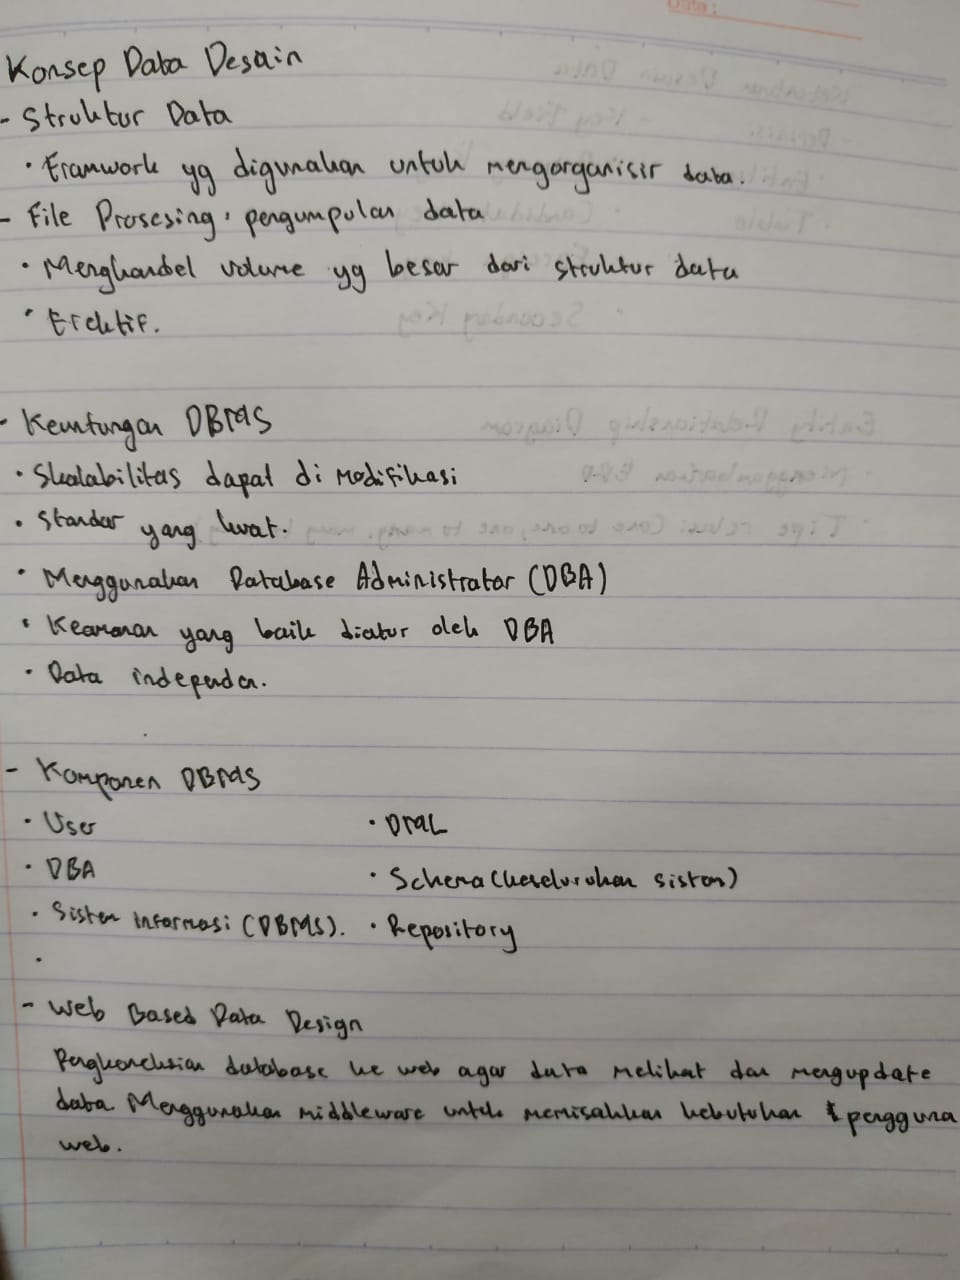 Date:
Konsep Data Desain
- Struktur Data
• Framwork yg digunakan untuk mengorganisir data.
- File Prosesing, pengumpulan data
• Menghandel volume yg besar dari struktur data
• Efektif.
- Keuntungan DBMS
• Skalabilitas dapat di Modifikasi
• Standar yang kuat.
• Menggunakan Database Administrator (DBA)
• Keamanan yang baik diatur oleh DBA
• Data independen.
- Komponen DBMS
• User • DML
• DBA • Schema (keseluruhan sistem)
• Sistem informasi (DBMS). • Repository
•
- Web Based Data Design
Pengkoneksian database ke web agar data melihat dan mengupdate
data Menggunakan middleware untuk memisahkan kebutuhan pengguna
web.